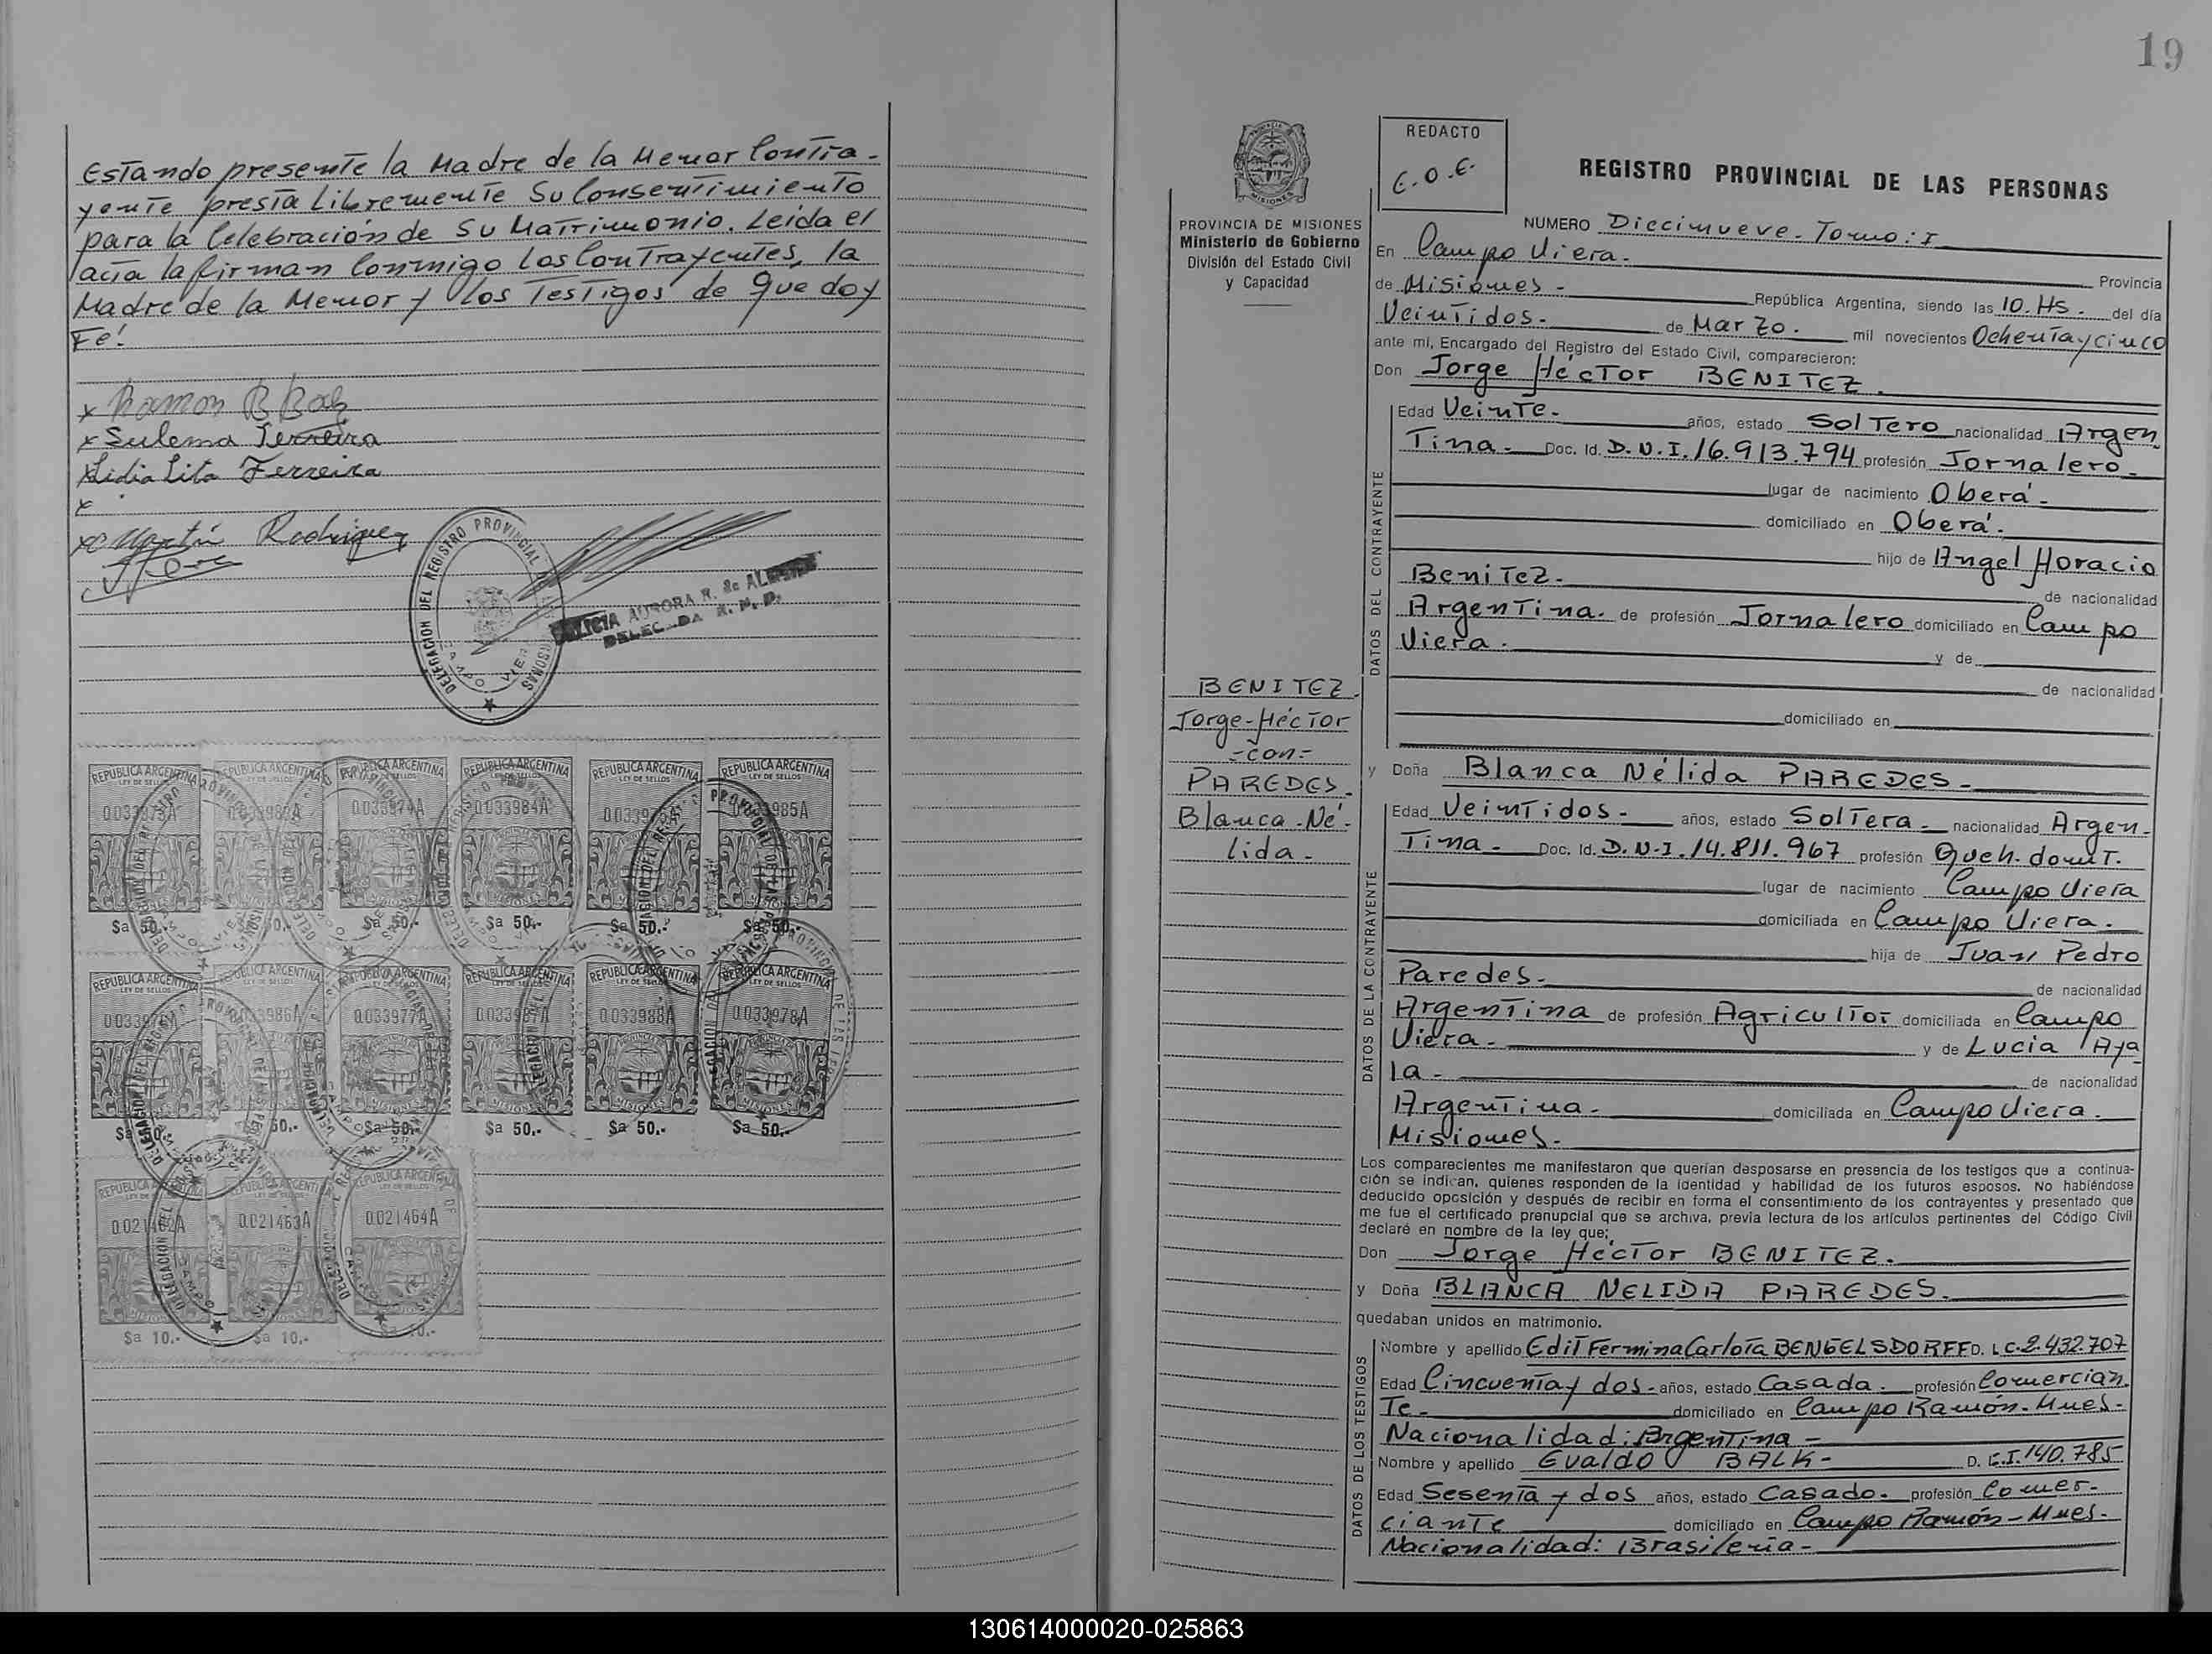 Estando presente la Madre de la Menor Contra-
yente presta Libremente Su Consentimiento
para la Celebración de Su Matrimonio. Leida el
acta la firman Conmigo los Contrayentes, la
Madre de la Menor y los Testigos de que doy
Fé!
x Ramon B
x Sulema Ferreira
x Lidia Lita Ferreira
x
x Martín Rodriguez
DELEGACION DEL REGISTRO PROVINCIAL DE LAS PERSONAS
CAMPO VIERA
AURORA R. de
DELEGADA R. P. P.
REPUBLICA ARGENTINA
LEY DE SELLOS
0033974A
0033984A
0033985A
$a 50.-
0033986A
0033977A
0033987A
0033988A
0033978A
$a 50.-
0021462A
0021463A
0021464A
$a 10.-
$a 10.-
19
PROVINCIA DE MISIONES
Ministerio de Gobierno
División del Estado Civil
y Capacidad
REDACTO
C.O.E.
REGISTRO PROVINCIAL DE LAS PERSONAS
NUMERO Diecinueve - Tomo: I
En Campo Viera. Provincia
de Misiones - República Argentina, siendo las 10. Hs. del día
Veintidos. de Marzo. mil novecientos Ochenta y cinco
ante mí, Encargado del Registro del Estado Civil, comparecieron:
Don Jorge Héctor BENITEZ.
DATOS DEL CONTRAYENTE
Edad Veinte. años, estado Soltero nacionalidad Argen
Tina. Doc. Id. D.N.I. 16.913.794 profesión Jornalero-
lugar de nacimiento Oberá-
domiciliado en Oberá.
hijo de Angel Horacio
Benitez. de nacionalidad
Argentina. de profesión Jornalero domiciliado en Campo
Viera. y de
de nacionalidad
domiciliado en
BENITEZ.
Jorge-Héctor
-con-
PAREDES.
Blanca-Né-
lida-
y Doña Blanca Nélida PAREDES-
DATOS DE LA CONTRAYENTE
Edad Veintidos- años, estado Soltera- nacionalidad Argen-
Tina- Doc. Id. D.N.I. 14.811.967 profesión Queh. domT.
lugar de nacimiento Campo Viera
domiciliada en Campo Viera.
hija de Juan Pedro
Paredes- de nacionalidad
Argentina de profesión Agricultor domiciliada en Campo
Viera- y de Lucia Aya
la- de nacionalidad
Argentina- domiciliada en Campo Viera.
Misiones-
Los comparecientes me manifestaron que querían desposarse en presencia de los testigos que a continua-
ción se indican, quienes responden de la identidad y habilidad de los futuros esposos. No habiéndose
deducido oposición y después de recibir en forma el consentimiento de los contrayentes y presentado que
me fue el certificado prenupcial que se archiva, previa lectura de los artículos pertinentes del Código Civil
declaré en nombre de la ley que:
Don Jorge Héctor BENITEZ.
y Doña BLANCA NELIDA PAREDES.
quedaban unidos en matrimonio.
DATOS DE LOS TESTIGOS
Nombre y apellido Edit Fermina Carlota BENGELSDORFF D. L.C. 2.432.707
Edad Cincuenta y dos- años, estado Casada. profesión Comercian
Te- domiciliado en Campo Ramón- Mnes-
Nacionalidad: Argentina-
Nombre y apellido Evaldo BALK- D. C.I. 140.785
Edad Sesenta y dos años, estado Casado- profesión Comer-
ciante domiciliado en Campo Ramón- Mnes-
Nacionalidad: Brasileria-
130614000020-025863